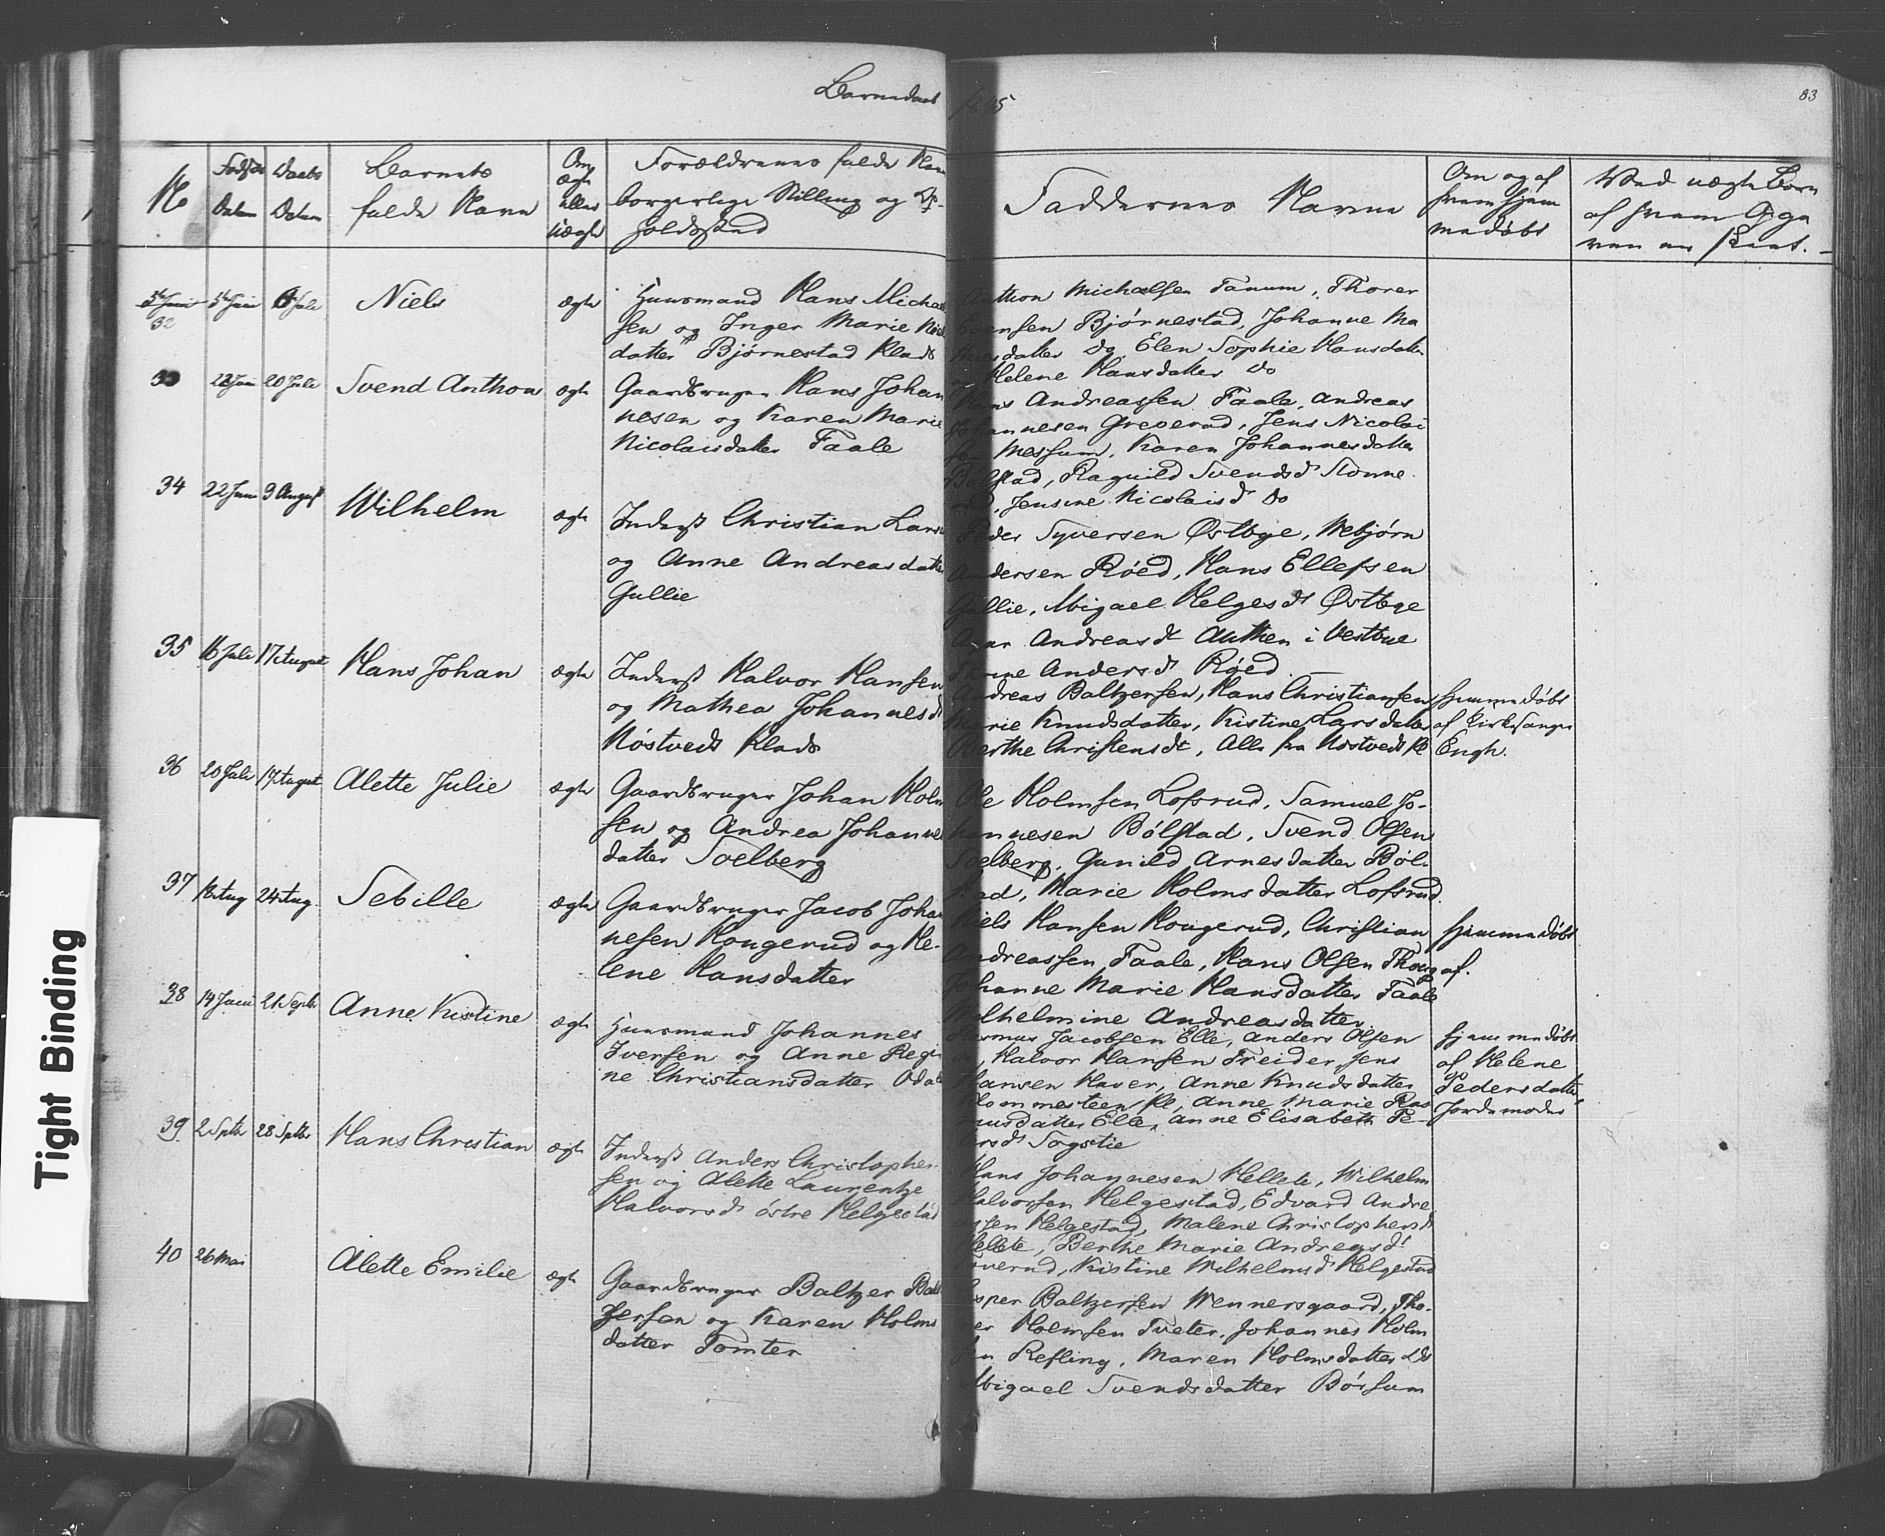 Barnedaab 1845
83
No
Fødsels
Datum
Daabs
Datum
Barnets
fulde Navn
Om
ægte
eller
uægte
Forældrenes fulde Navn
borgerlige Stilling og Op-
holdssted
Faddernes Navne
Om og af
hvem hjem
medøbt
Ved uægte Børn
af hvem Opga
ven er skeet.
32
5te Juni
6 Juli
Niels
ægte
Huusmand Hans Michael
sen og Inger Marie
datter Bjørnestad Klads
Anthon Michelsen Fanum, Thorer
Evensen Bjørnestad, Johanne Ma
datter do, Elen Sophie Hansdatter
Helene Hansdatter do
33
20 Juli
Svend Anthon
ægte
Gaardbruger Hans Johan
nesen og Karen Marie
Nicolaisdatter Faale
Hans Andreassen Faale, Andreas
Johannesen Greverud, Jens Nicolai
sen Messum, Karen Johannesdatter
Bølstad, Raguild Svendsd Sonne
rud, Jensine Nicolaisd do
34
22 Juni
3 August
Wilhelm
ægte
Inderst Christian Lars
og Anne Andreasdatter
Gullie
Peder Syversen Østbye, Mebjørn
Andersen Røed, Hans Ellefsen
Gullie, Abigael Helgesdt Østbye
Andreasdt Authen i Vestbye
Andersdt Røed
35
16 Juli
17 August
Hans Johan
ægte
Inderst Halvor Hansen
og Mathea Johannesdt
Nøstvedt Klads
Andreas Baltzersen, Hans Christiansen
Marie Knudsdatter, Kistine Larsdatter
Berthe Christensdt, Alle fra Nøstvedt Kl
Hjemmedøbt
af Kirkesanger
Engh.
36
20 Juli
17 August
Alette Julie
ægte
Gaardbruger Johan Holm
sen og Andrea Johannes
datter Soelberg
Ole Holmsen Lofsrud, Samuel Jo-
hannesen Bølstad, Svend Olsen
Soelberg, Gunild Arnesdatter Bøl-
stad, Marie Holmsdatter Lofsrud
37
18 Aug
24 Aug.
Sebille
ægte
Gaardbruger Jacob Johan
nesen Hougerud og He-
lene Hansdatter
Niels Hansen Hougerud, Christian
Andreassen Faale, Hans Olsen
Johanne Marie Hansdatter Faale
Wilhelmine Andreasdatter
Hjemmedøbt
af.
38
14 Juni
21 Septbr
Anne Kistine
ægte
Huusmand Johannes
Iversen og Anne Regi
ne Christiansdatter
Rasmus Jacobsen Elle, Anders Olsen
do, Halvor Hansen Freider, Jens
Hansen Haver, Anne Knudsdatter
Blommesteen Kl, Anne Marie Ras
musdatter Elle, Anne Elisabeth Pe-
dersdt Sogstie
hjemmedøbt
af Helene
Pedersdatter
Jordemoder
39
2 Sptbr
28 Sptbr
Hans Christian
ægte
Inderst Anders Christopher
sen og Alette Laurentze
Halvorsdt østre Helgestad
Hans Johannesen Hellete, Wilhelm
Halvorsen Helgestad, Edvard Andre
assen Helgestad, Malene Christophersdt
Hellete, Berthe Marie Andreasdt
Kistine Wilhelmsdt Helgestad
40
26 Mai
Alette Emilie
ægte
Gaardbruger Baltzer Balt
zersen og Karen Holms
datter Tomter
Jesper Baltzersen Wennersgaard, Tho-
rer Holmsen Tveter, Johannes Holm
sen Refling, Maren Holmsdatter
Abigael Svendsdatter Børsum
Tight Binding